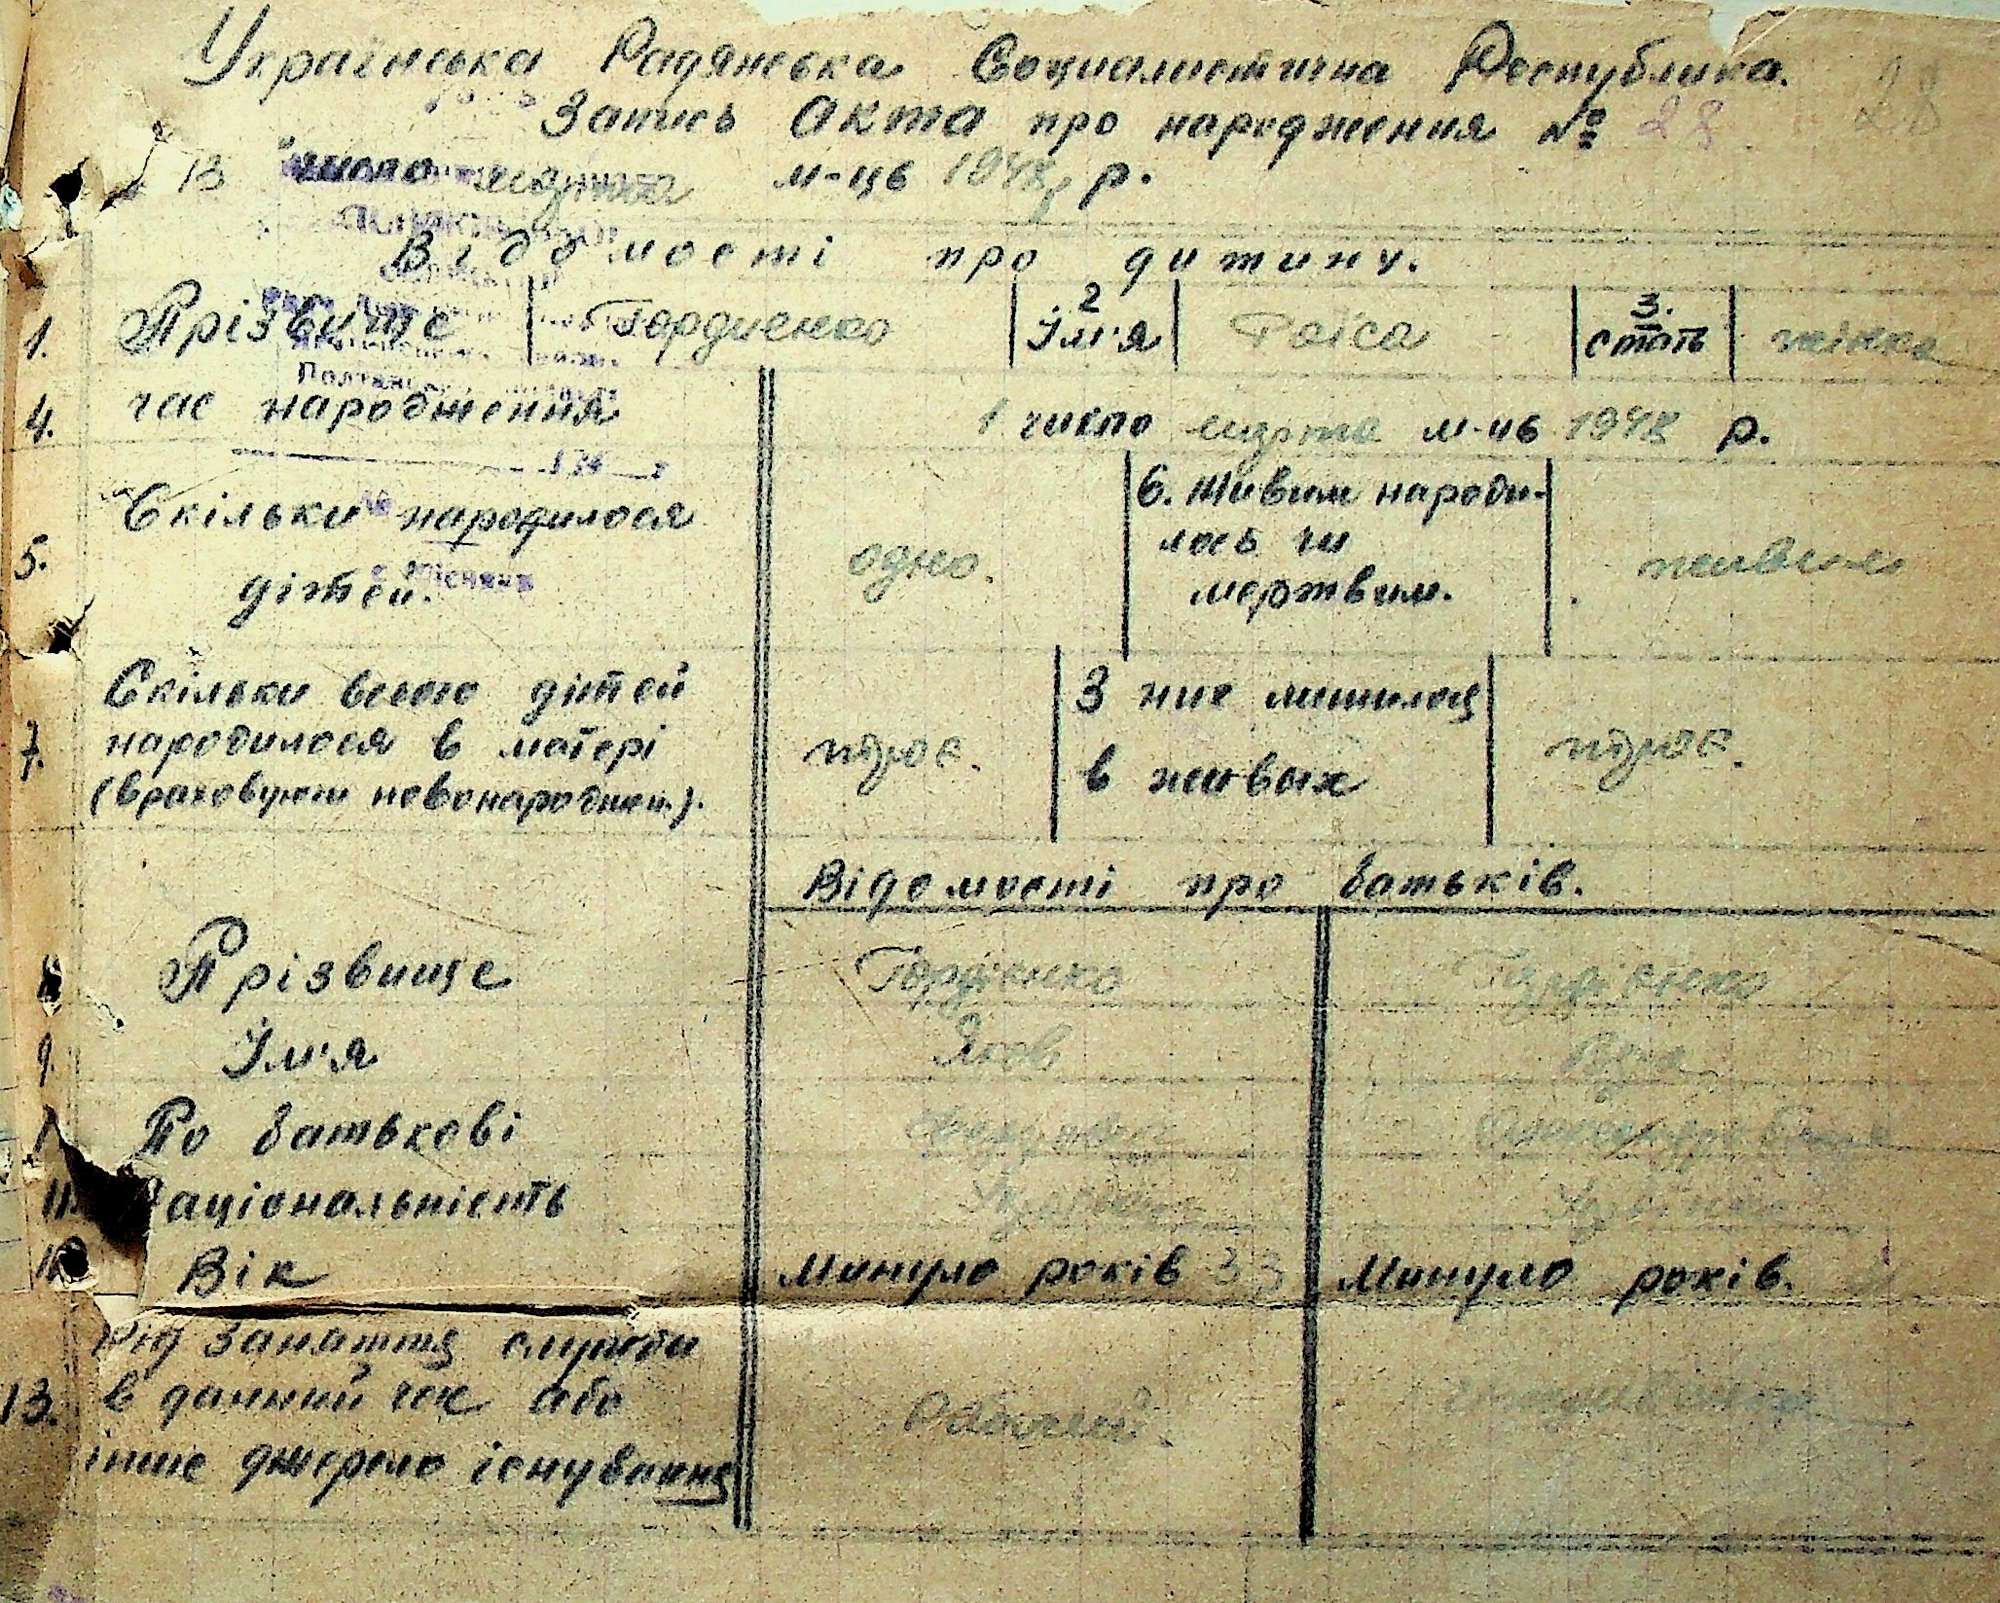 Українська Радянська Социалистична Республика.
Запись Акта про народження № 28
28
13 число марта м-ць 1948 р.
Відомості про дитину.
1. Прізвище Гордиенко 2 Їм'я Раїса 3. стать жінка
Полтавс
4. час народження 1 число марта м-ць 1948 р.
5. Скільки народилося дітей. одно. 6. Живим народи-
лось чи
мертвим. живим
7. Скільки всього дітей
народилося в матері
(враховуючи новонароджен.). трое. З них лишилося
в живых трое.
Відомості про батьків.
8 Прізвище Гордієнко Гордієнко
9. Їм'я Яков
По батькові
11. Національність
12 Вік Минуло років 33 Минуло років.
13. Рід заняття служби
в данний час або
інше джерело існування Рабочий.